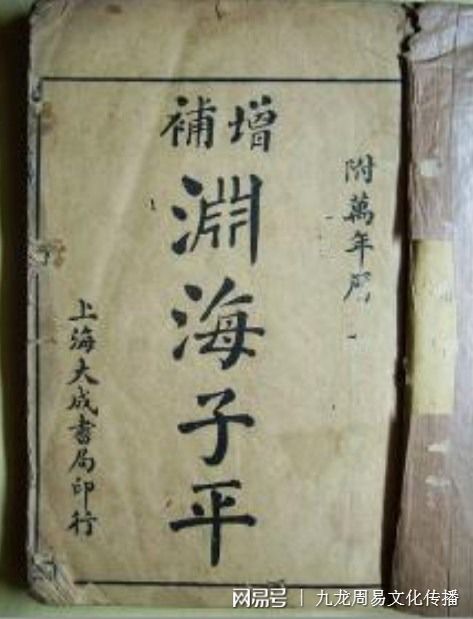 附萬年曆
增補
淵海子平
上海大成書局印行
网易号 | 九龙周易文化传播